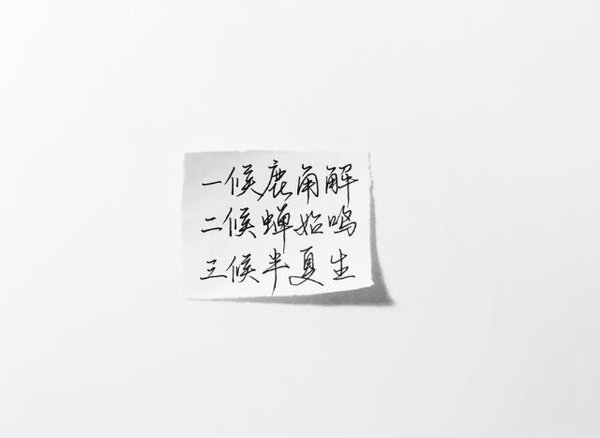 一候鹿角解
二候蝉始鸣
三候半夏生